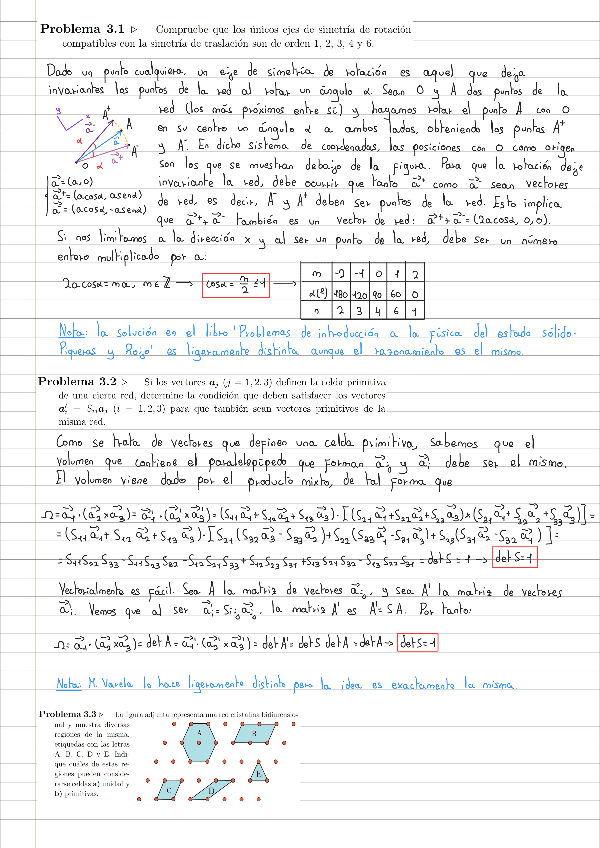 Problema 3.1 ▷ Compruebe que los únicos ejes de simetría de rotación
compatibles con la simetría de traslación son de orden 1, 2, 3, 4 y 6.
Dado un punto cualquiera, un eje de simetría de rotación es aquel que deja
invariantes los puntos de la red al rotar un ángulo α. Sean O y A dos puntos de la
red (los más próximos entre sí) y hagamos rotar el punto A con O
en su centro un ángulo α a ambos lados, obteniendo los puntos A⁺
y A⁻. En dicho sistema de coordenadas, las posiciones con O como origen
son los que se muestran debajo de la figura. Para que la rotación deje
invariante la red, debe ocurrir que tanto a⃗⁺ como a⃗⁻ sean vectores
de red, es decir, A⁻ y A⁺ deben ser puntos de la red. Esto implica
que a⃗⁺+a⃗⁻ también es un vector de red: a⃗⁺+a⃗⁻=(2acosα, 0, 0).
y x A⁺ A A⁻ O α α a⃗⁺ a⃗ a⃗⁻
a⃗=(a,0)
a⃗⁺=(acosα, asenα)
a⃗⁻=(acosα,-asenα)
Si nos limitamos a la dirección x y al ser un punto de la red, debe ser un número
entero multiplicado por a:
2acosα=ma, m∈ℤ → cosα=m/2≤1 →
m -2 -1 0 1 2
α(º) 180 120 90 60 0
n 2 3 4 6 1
Nota: la solución en el libro 'Problemas de introducción a la física del estado sólido-
Piqueras y Rojo' es ligeramente distinta aunque el razonamiento es el mismo.
Problema 3.2 ▷ Si los vectores aⱼ (j = 1, 2, 3) definen la celda primitiva
de una cierta red, determine la condición que deben satisfacer los vectores
a′ᵢ = Sᵢⱼaⱼ (i = 1, 2, 3) para que también sean vectores primitivos de la
misma red.
Como se trata de vectores que definen una celda primitiva, sabemos que el
volumen que contiene el paralelepípedo que forman a⃗ⱼ y a⃗'ᵢ debe ser el mismo.
El volumen viene dado por el producto mixto, de tal forma que
Ω=a⃗₁·(a⃗₂×a⃗₃)=a⃗'₁·(a⃗'₂×a⃗'₃)=(S₁₁a⃗₁+S₁₂a⃗₂+S₁₃a⃗₃)·[(S₂₁a⃗₁+S₂₂a⃗₂+S₂₃a⃗₃)×(S₃₁a⃗₁+S₃₂a⃗₂+S₃₃a⃗₃)]=
=(S₁₁a⃗₁+S₁₂a⃗₂+S₁₃a⃗₃)·[S₂₁(S₃₂a⃗₃-S₃₃a⃗₂)+S₂₂(S₃₃a⃗₁-S₃₁a⃗₃)+S₂₃(S₃₁a⃗₂-S₃₂a⃗₁)]=
=S₁₁S₂₂S₃₃-S₁₁S₂₃S₃₂-S₁₂S₂₁S₃₃+S₁₂S₂₃S₃₁+S₁₃S₂₁S₃₂-S₁₃S₂₂S₃₁=detS=1 → detS=1
Vectorialmente es fácil. Sea A la matriz de vectores a⃗ⱼ, y sea A' la matriz de vectores
a⃗'ᵢ. Vemos que al ser a⃗'ᵢ=Sᵢⱼa⃗ⱼ, la matriz A' es A'=SA. Por tanto:
Ω=a⃗₁·(a⃗₂×a⃗₃)=detA=a⃗'₁·(a⃗'₂×a⃗'₃)=detA'=detS detA=detA→ detS=1
Nota: M. Varela lo hace ligeramente distinto pero la idea es exactamente la misma.
Problema 3.3 ▷ La figura adjunta representa una red cristalina bidimensio-
nal y muestra diversas
regiones de la misma,
etiquetadas con las letras
A, B, C, D y E. Indi-
que cuáles de estas re-
giones pueden conside-
rarse celdas a) unidad y
b) primitivas.
A B
C D E